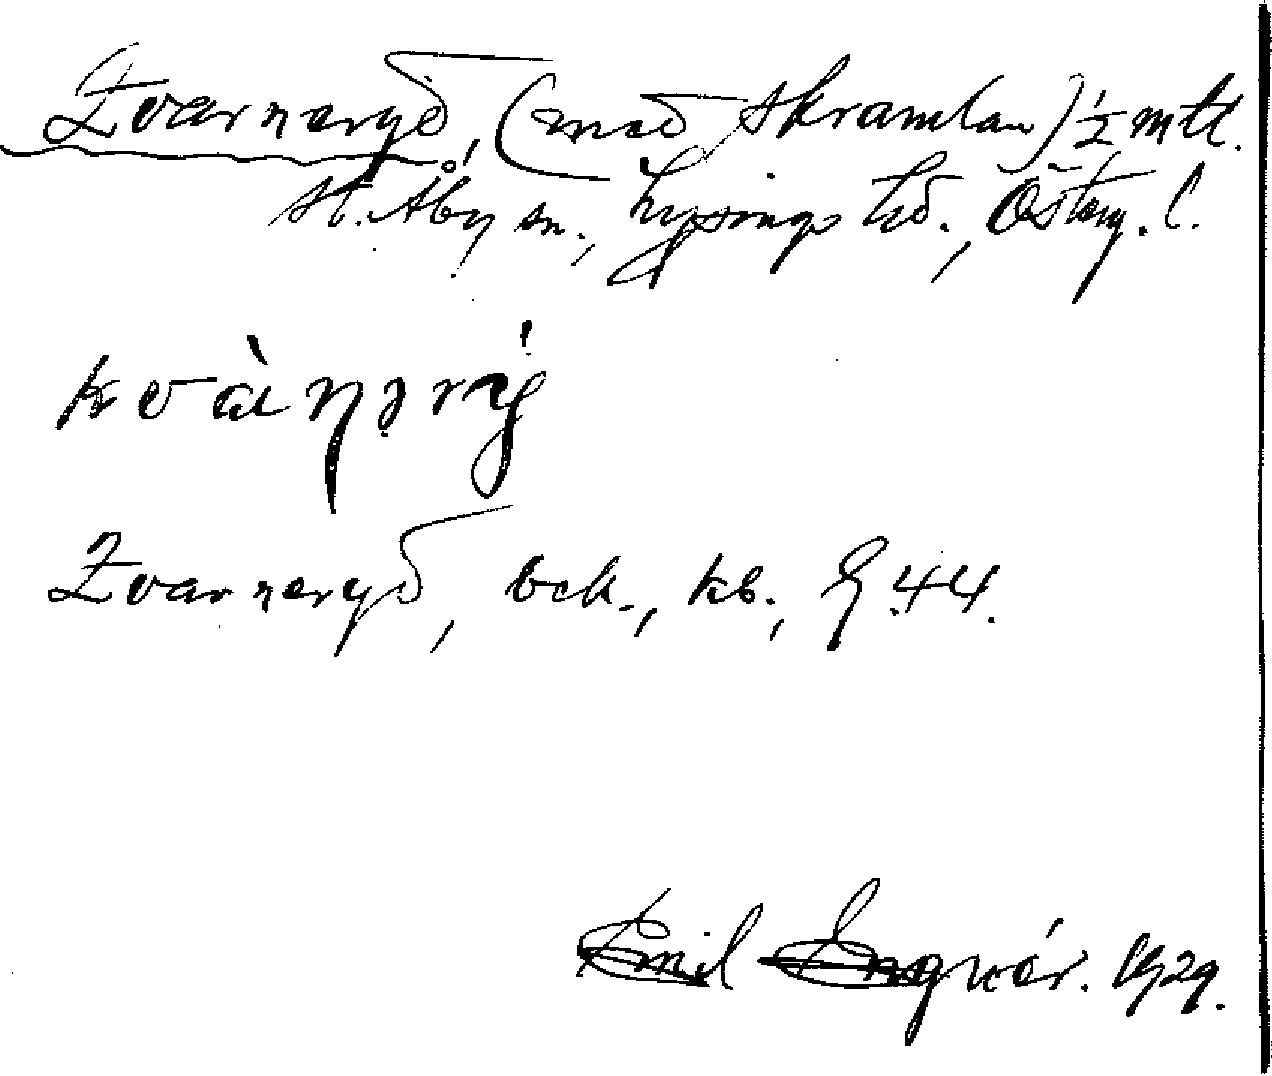 Kvarneryd, (med Skramlan) ½ mtl.
St. Åby sn., Lysings hd., Österg. l.
kvàṇərý
Kvarneryd, bck., kb., G 44.
Emil Engvér. 1929.